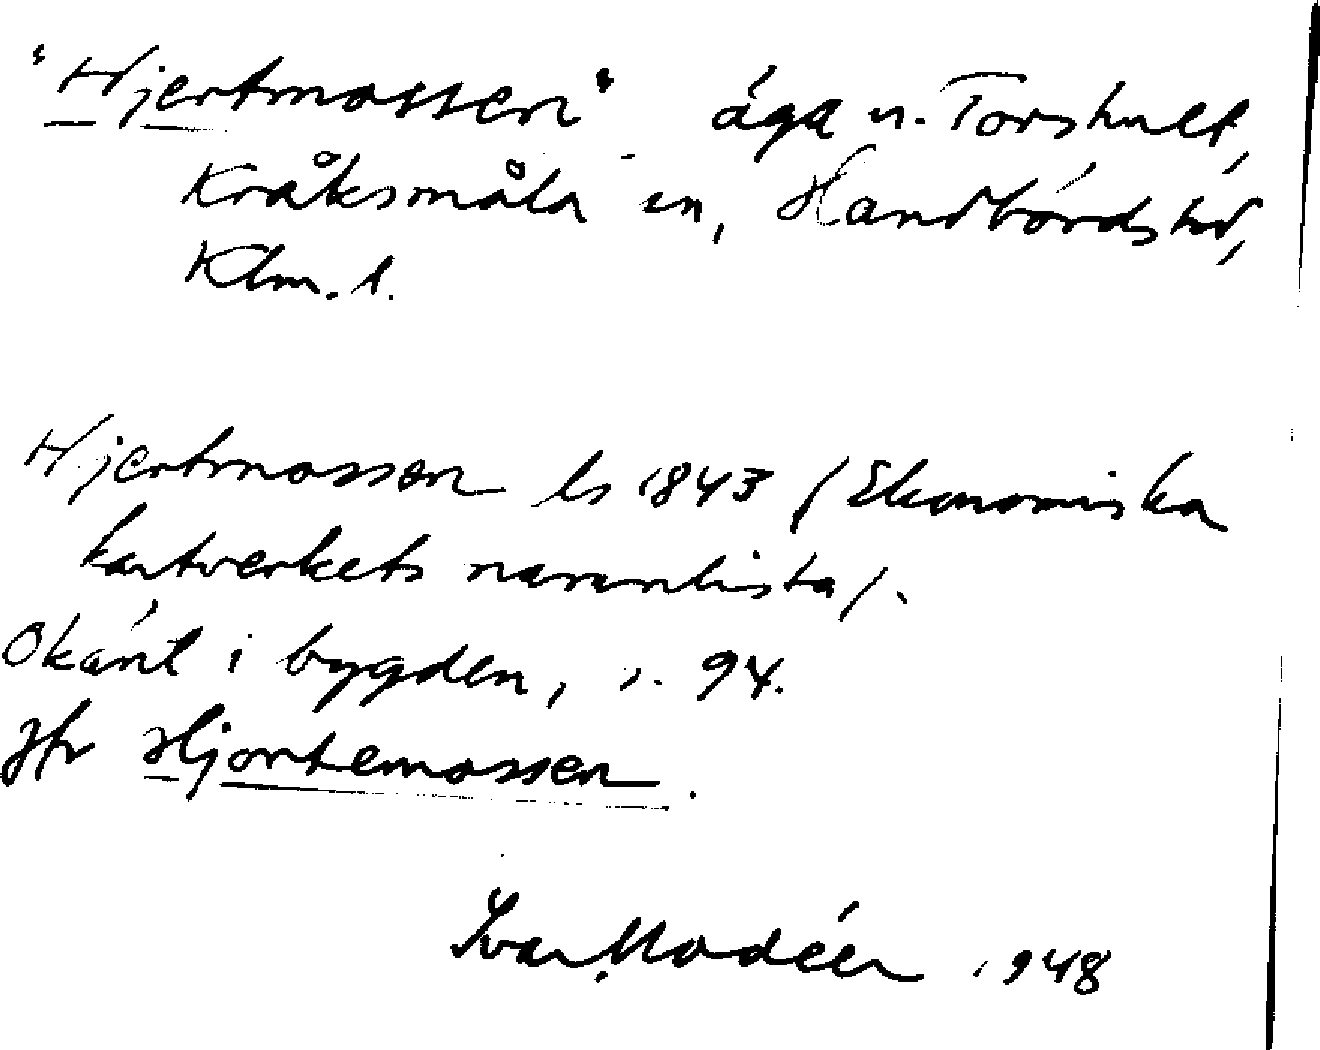 "Hjertmossen" äga n. Torshult,
Kråksmåla sn, Handbörds hd,
Klm. l.
Hjertmossen ls 1843 /Ekonomiska
kartverkets namnlista/.
Okänt i bygden, s. 94.
Jfr Hjortemossen.
Ivar Modéer 1948